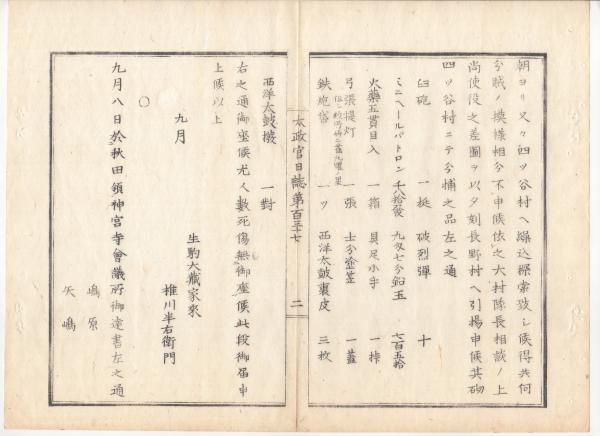 朝ヨリ又々四ツ谷村ヘ繰込探索致シ候得共何
分賊ノ模様相分不申候依之大村隊長相談ノ上
尚使役之差圖ヲ以夕刻長野村ヘ引揚申候其砌
四ツ谷村ニテ分捕之品左之通
臼砲 一挺 破烈彈 十
ミニヘールパトロン 千八拾發 九匁七分鉛玉 七百五拾
火藥五貫目入 一箱 具足小手 一掛
弓張提灯 一張 士分塗笠 一蓋
鉄炮笠 一ツ 西洋太鼓裏皮 三枚
太政官日誌第百三十七 二
西洋太鼓撥 一對
右之通御座候尤人數死傷無御座候此段御届申
上候以上
九月
生駒大藏家來
椎川半右衛門
○
九月八日於秋田領神宮寺會議所御達書左之通
嶋原
矢嶋